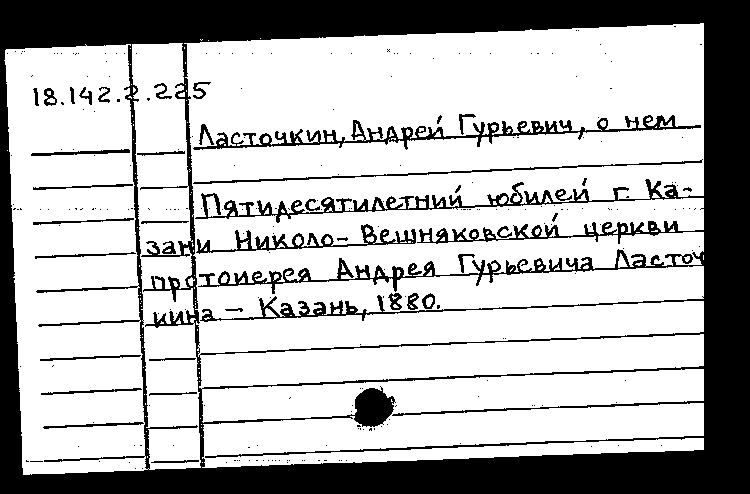 18.142.2.225
Ласточкин, Андрей Гурьевич, о нем
Пятидесятилетний юбилей г. Ка-
зани Николо-Вешняковской церкви
протоиерея Андрея Гурьевича Ласточ
кина - Казань, 1880.